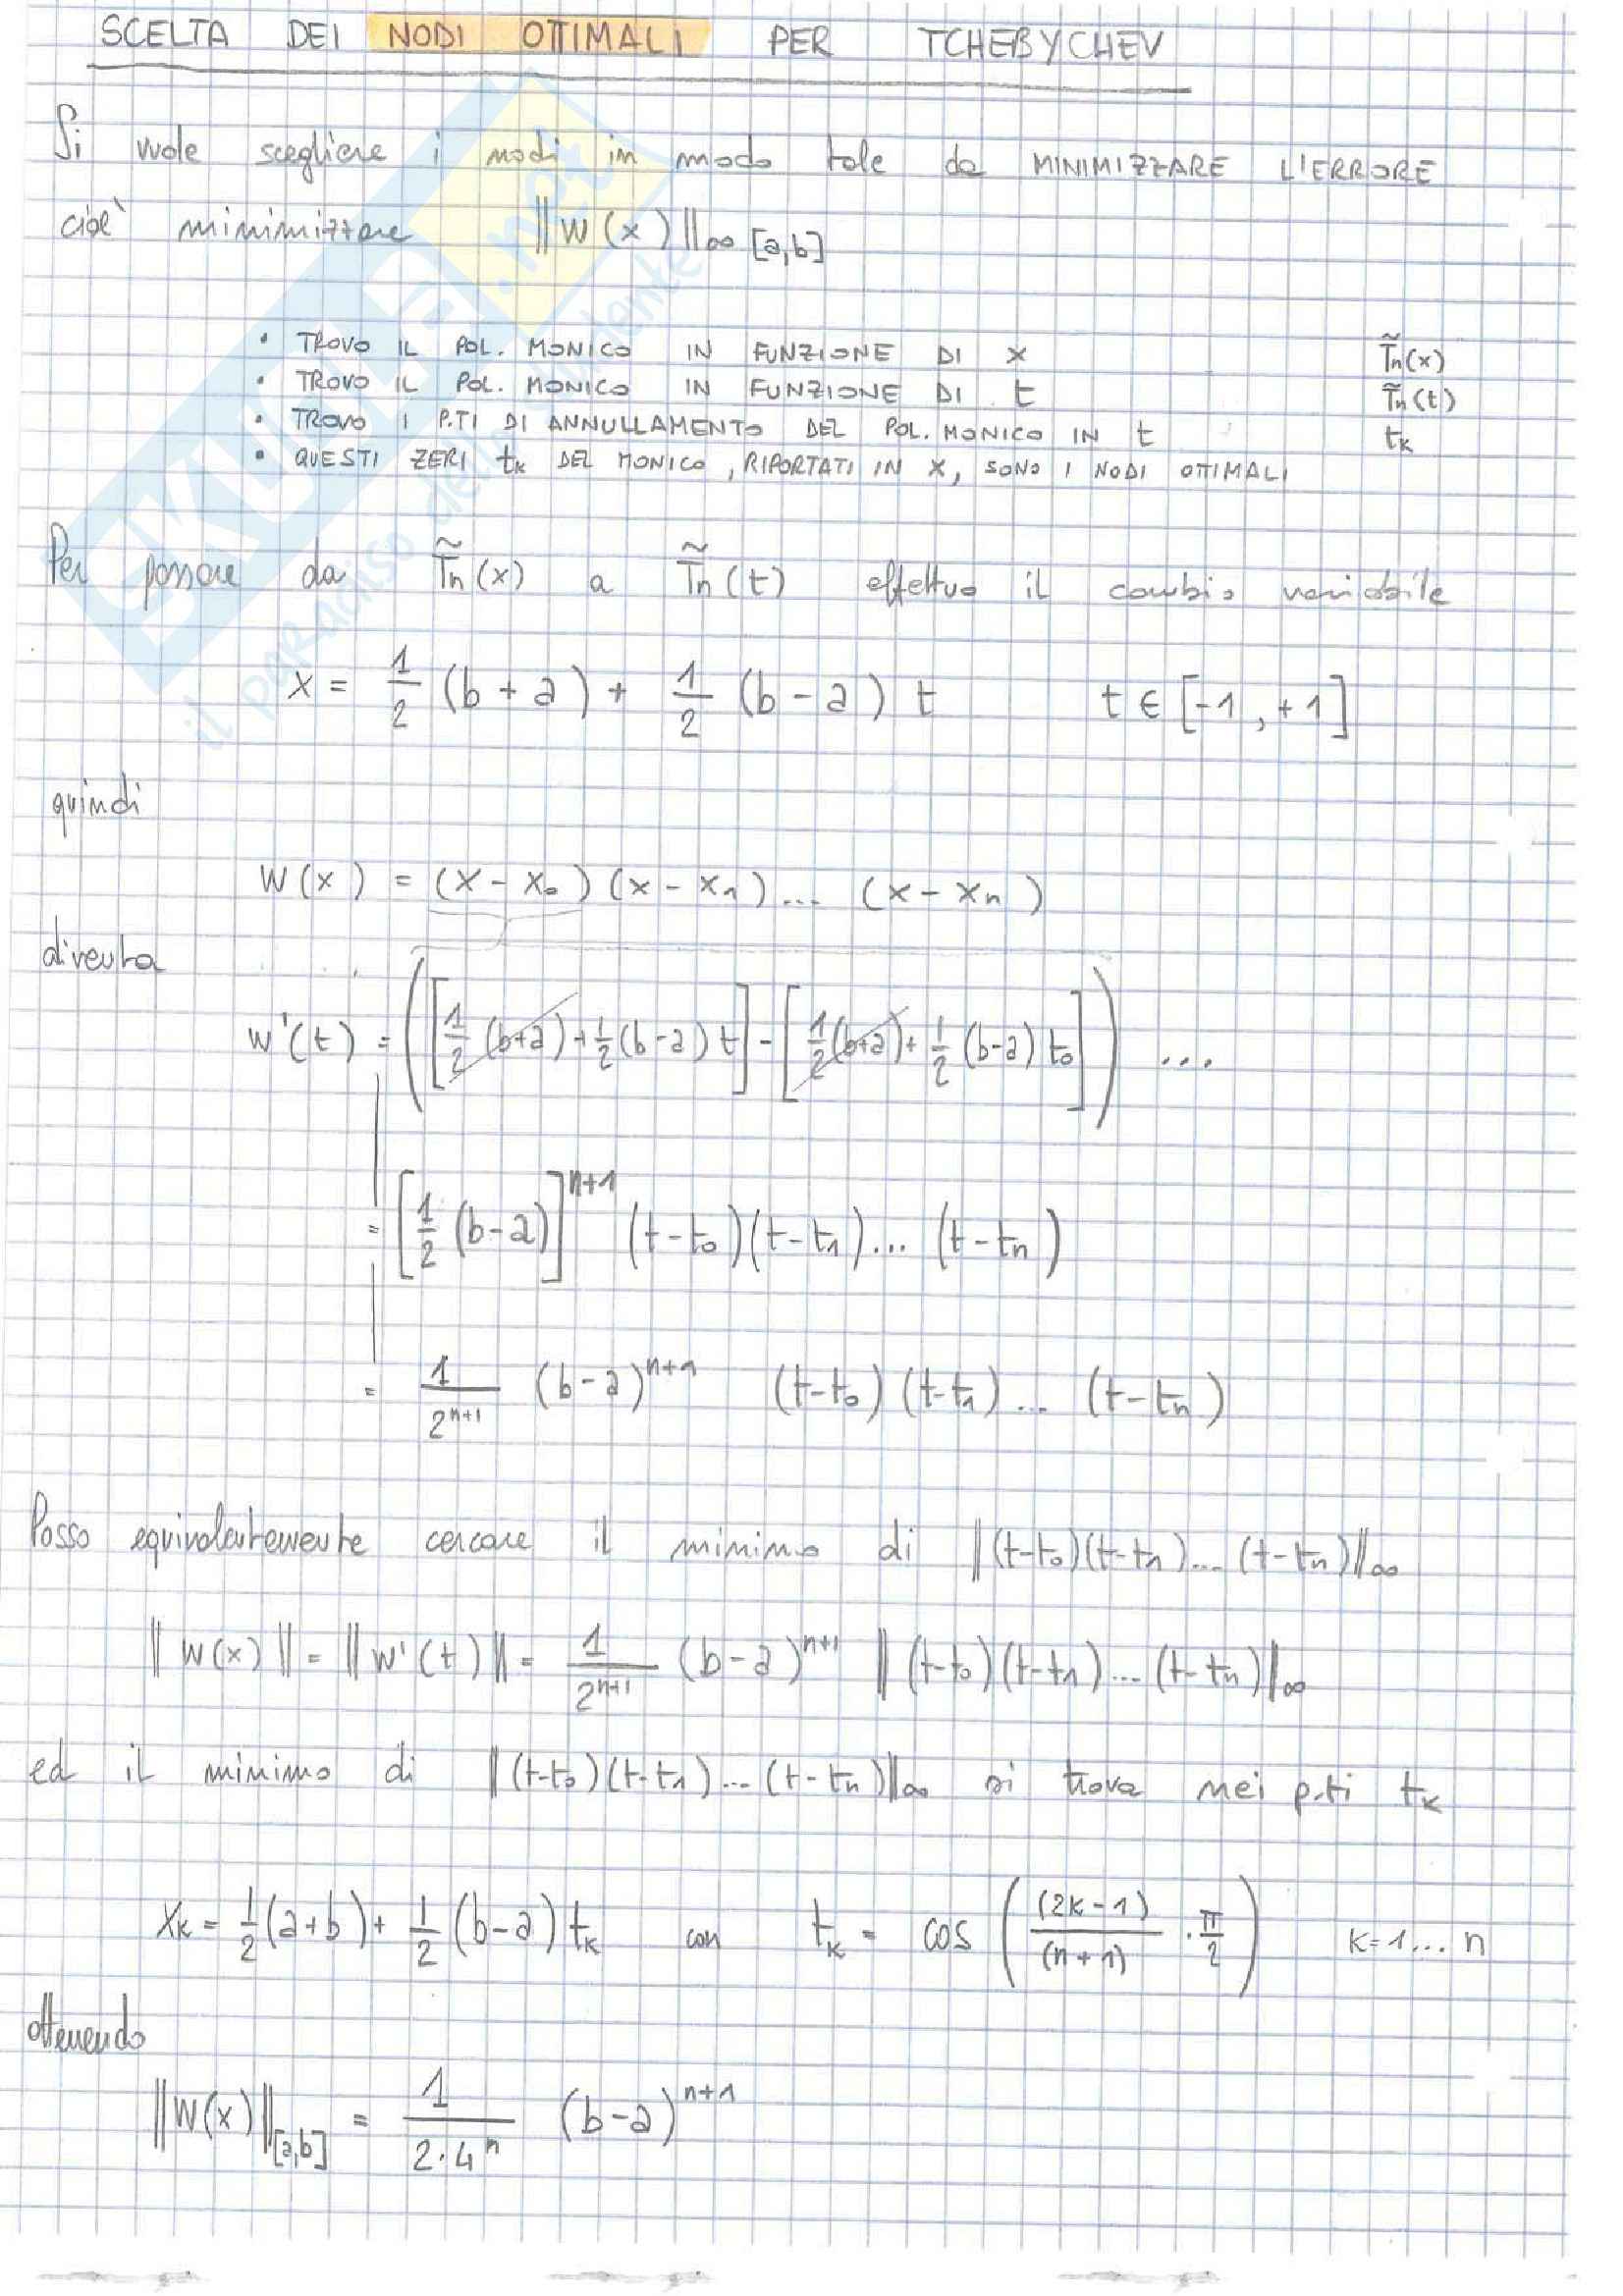 SCELTA DEI NODI OTTIMALI PER TCHEBYCHEV
Si vuole scegliere i nodi in modo tale da MINIMIZZARE L'ERRORE
cioè minimizzare ‖W(x)‖∞ [a,b]
• TROVO IL POL. MONICO IN FUNZIONE DI X T̃n(x)
• TROVO IL POL. MONICO IN FUNZIONE DI t T̃n(t)
• TROVO I P.TI DI ANNULLAMENTO DEL POL. MONICO IN t tk
• QUESTI ZERI tk DEL MONICO, RIPORTATI IN X, SONO I NODI OTTIMALI
Per passare da T̃n(x) a T̃n(t) effettuo il cambio variabile
x = 1/2 (b+a) + 1/2 (b-a) t t ∈ [-1,+1]
quindi
W(x) = (x-x₀)(x-x₁)... (x-xn)
diventa
W'(t) = ([1/2 (b+a) + 1/2 (b-a) t] - [1/2 (b+a) + 1/2 (b-a) t₀]) ...
= [1/2 (b-a)]^(n+1) (t-t₀)(t-t₁)... (t-tn)
= 1/2^(n+1) (b-a)^(n+1) (t-t₀)(t-t₁)... (t-tn)
Posso equivalentemente cercare il minimo di ‖(t-t₀)(t-t₁)... (t-tn)‖∞
‖W(x)‖ = ‖W'(t)‖ = 1/2^(n+1) (b-a)^(n+1) ‖(t-t₀)(t-t₁)... (t-tn)‖∞
ed il minimo di ‖(t-t₀)(t-t₁)... (t-tn)‖∞ si trova nei p.ti tk
xk = 1/2 (a+b) + 1/2 (b-a) tk con tk = cos((2k-1)/(n+1) · π/2) k=1...n
ottenendo
‖W(x)‖[a,b] = 1/(2·4^n) (b-a)^(n+1)
SKUOLA.net
il paradiso dello studente